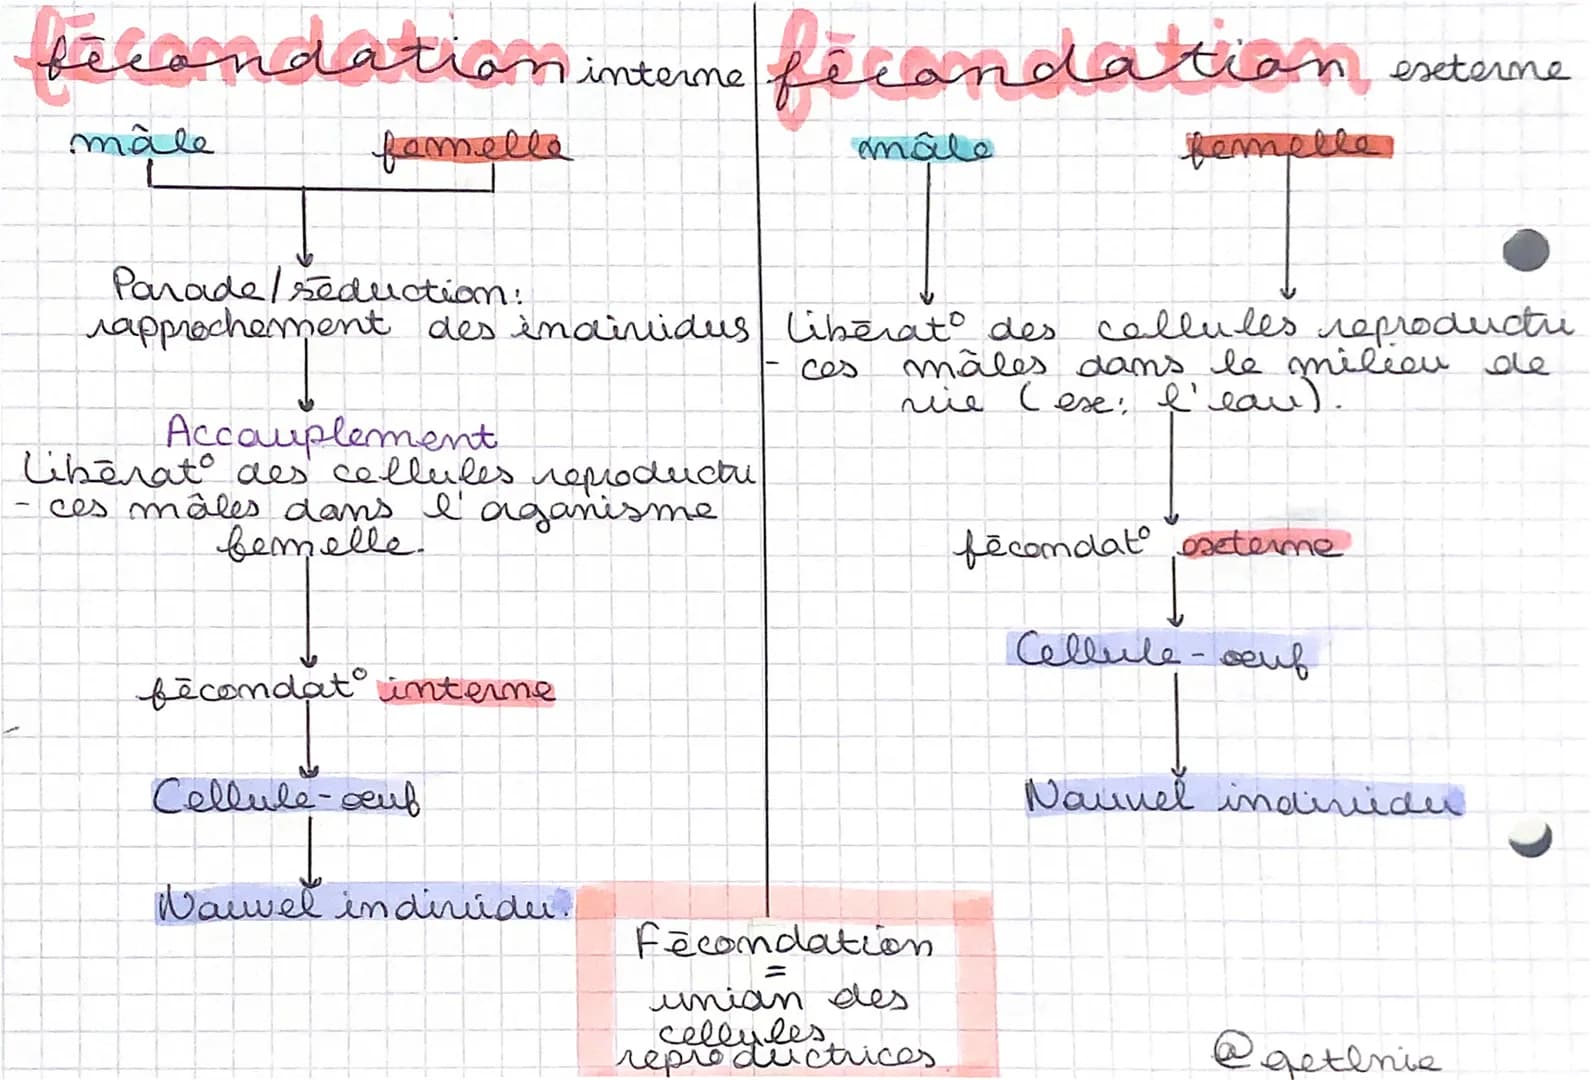 fécondation interne
mâle femelle
Parade/séduction:
rapprochement des individus
Accouplement
Libérat° des cellules reproductri
-ces mâles dans l'organisme
femelle.
fécondat° interne
Cellule-œuf
Nouvel individu.
fécondation externe
mâle femelle
Libérat° des cellules reproductri
-ces mâles dans le milieu de
vie (ex: l'eau).
fécondat° externe
Cellule-œuf
Nouvel individu
Fécondation
=
union des
cellules
reproductrices
@getlnie